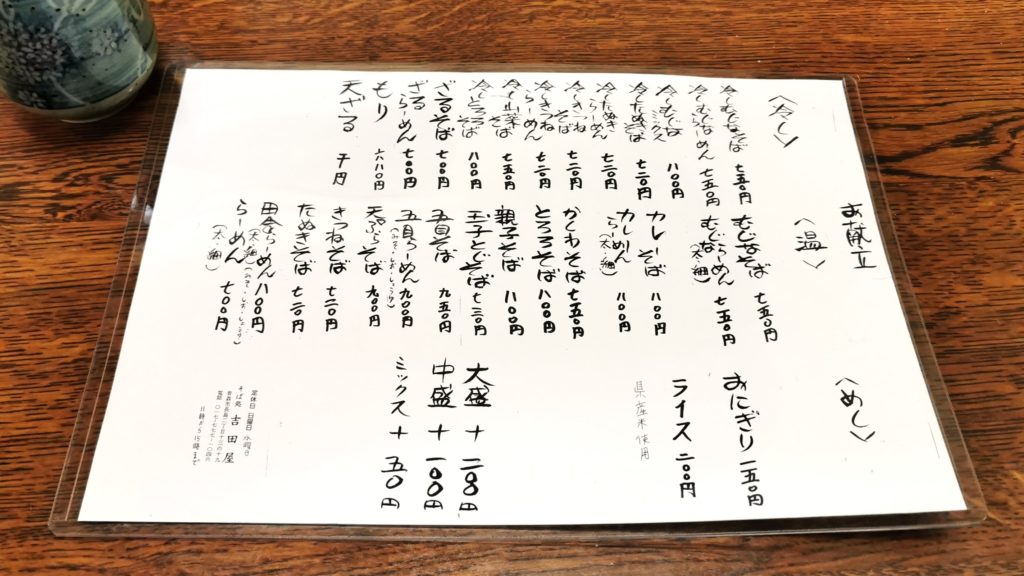 お献立
〈冷し〉
冷しむじなそば 七五〇円
冷しむじならーめん 七五〇円
冷しむじなミックス 八〇〇円
冷したぬきそば 七二〇円
冷したぬきらーめん 七二〇円
冷しきつねそば 七二〇円
冷しきつねらーめん 七二〇円
冷し山菜そば 七五〇円
冷しとろろそば 八〇〇円
ざるそば 七〇〇円
ざるらーめん 七〇〇円
もり 六八〇円
天ざる 千円
〈温〉
むじなそば 七五〇円
むじならーめん(太・細) 七五〇円
カレーそば 八〇〇円
カレーらーめん(太・細) 八〇〇円
かしわそば 七五〇円
とろろそば 八〇〇円
親子そば 八〇〇円
玉子とじそば 七三〇円
五目そば 九五〇円
五目らーめん(みそ・しお・しょうゆ) 九〇〇円
天ぷらそば 九〇〇円
きつねそば 七二〇円
たぬきそば 七二〇円
田舎らーめん(太・細)(みそ・しお・しょうゆ) 八〇〇円
らーめん(太・細) 七〇〇円
〈めし〉
おにぎり 一五〇円
ライス 二〇〇円
県産米使用
大盛 + 二〇〇円
中盛 + 一〇〇円
ミックス + 五〇円
定休日 日曜日 水曜日
そば処 吉田屋
11時から15時まで